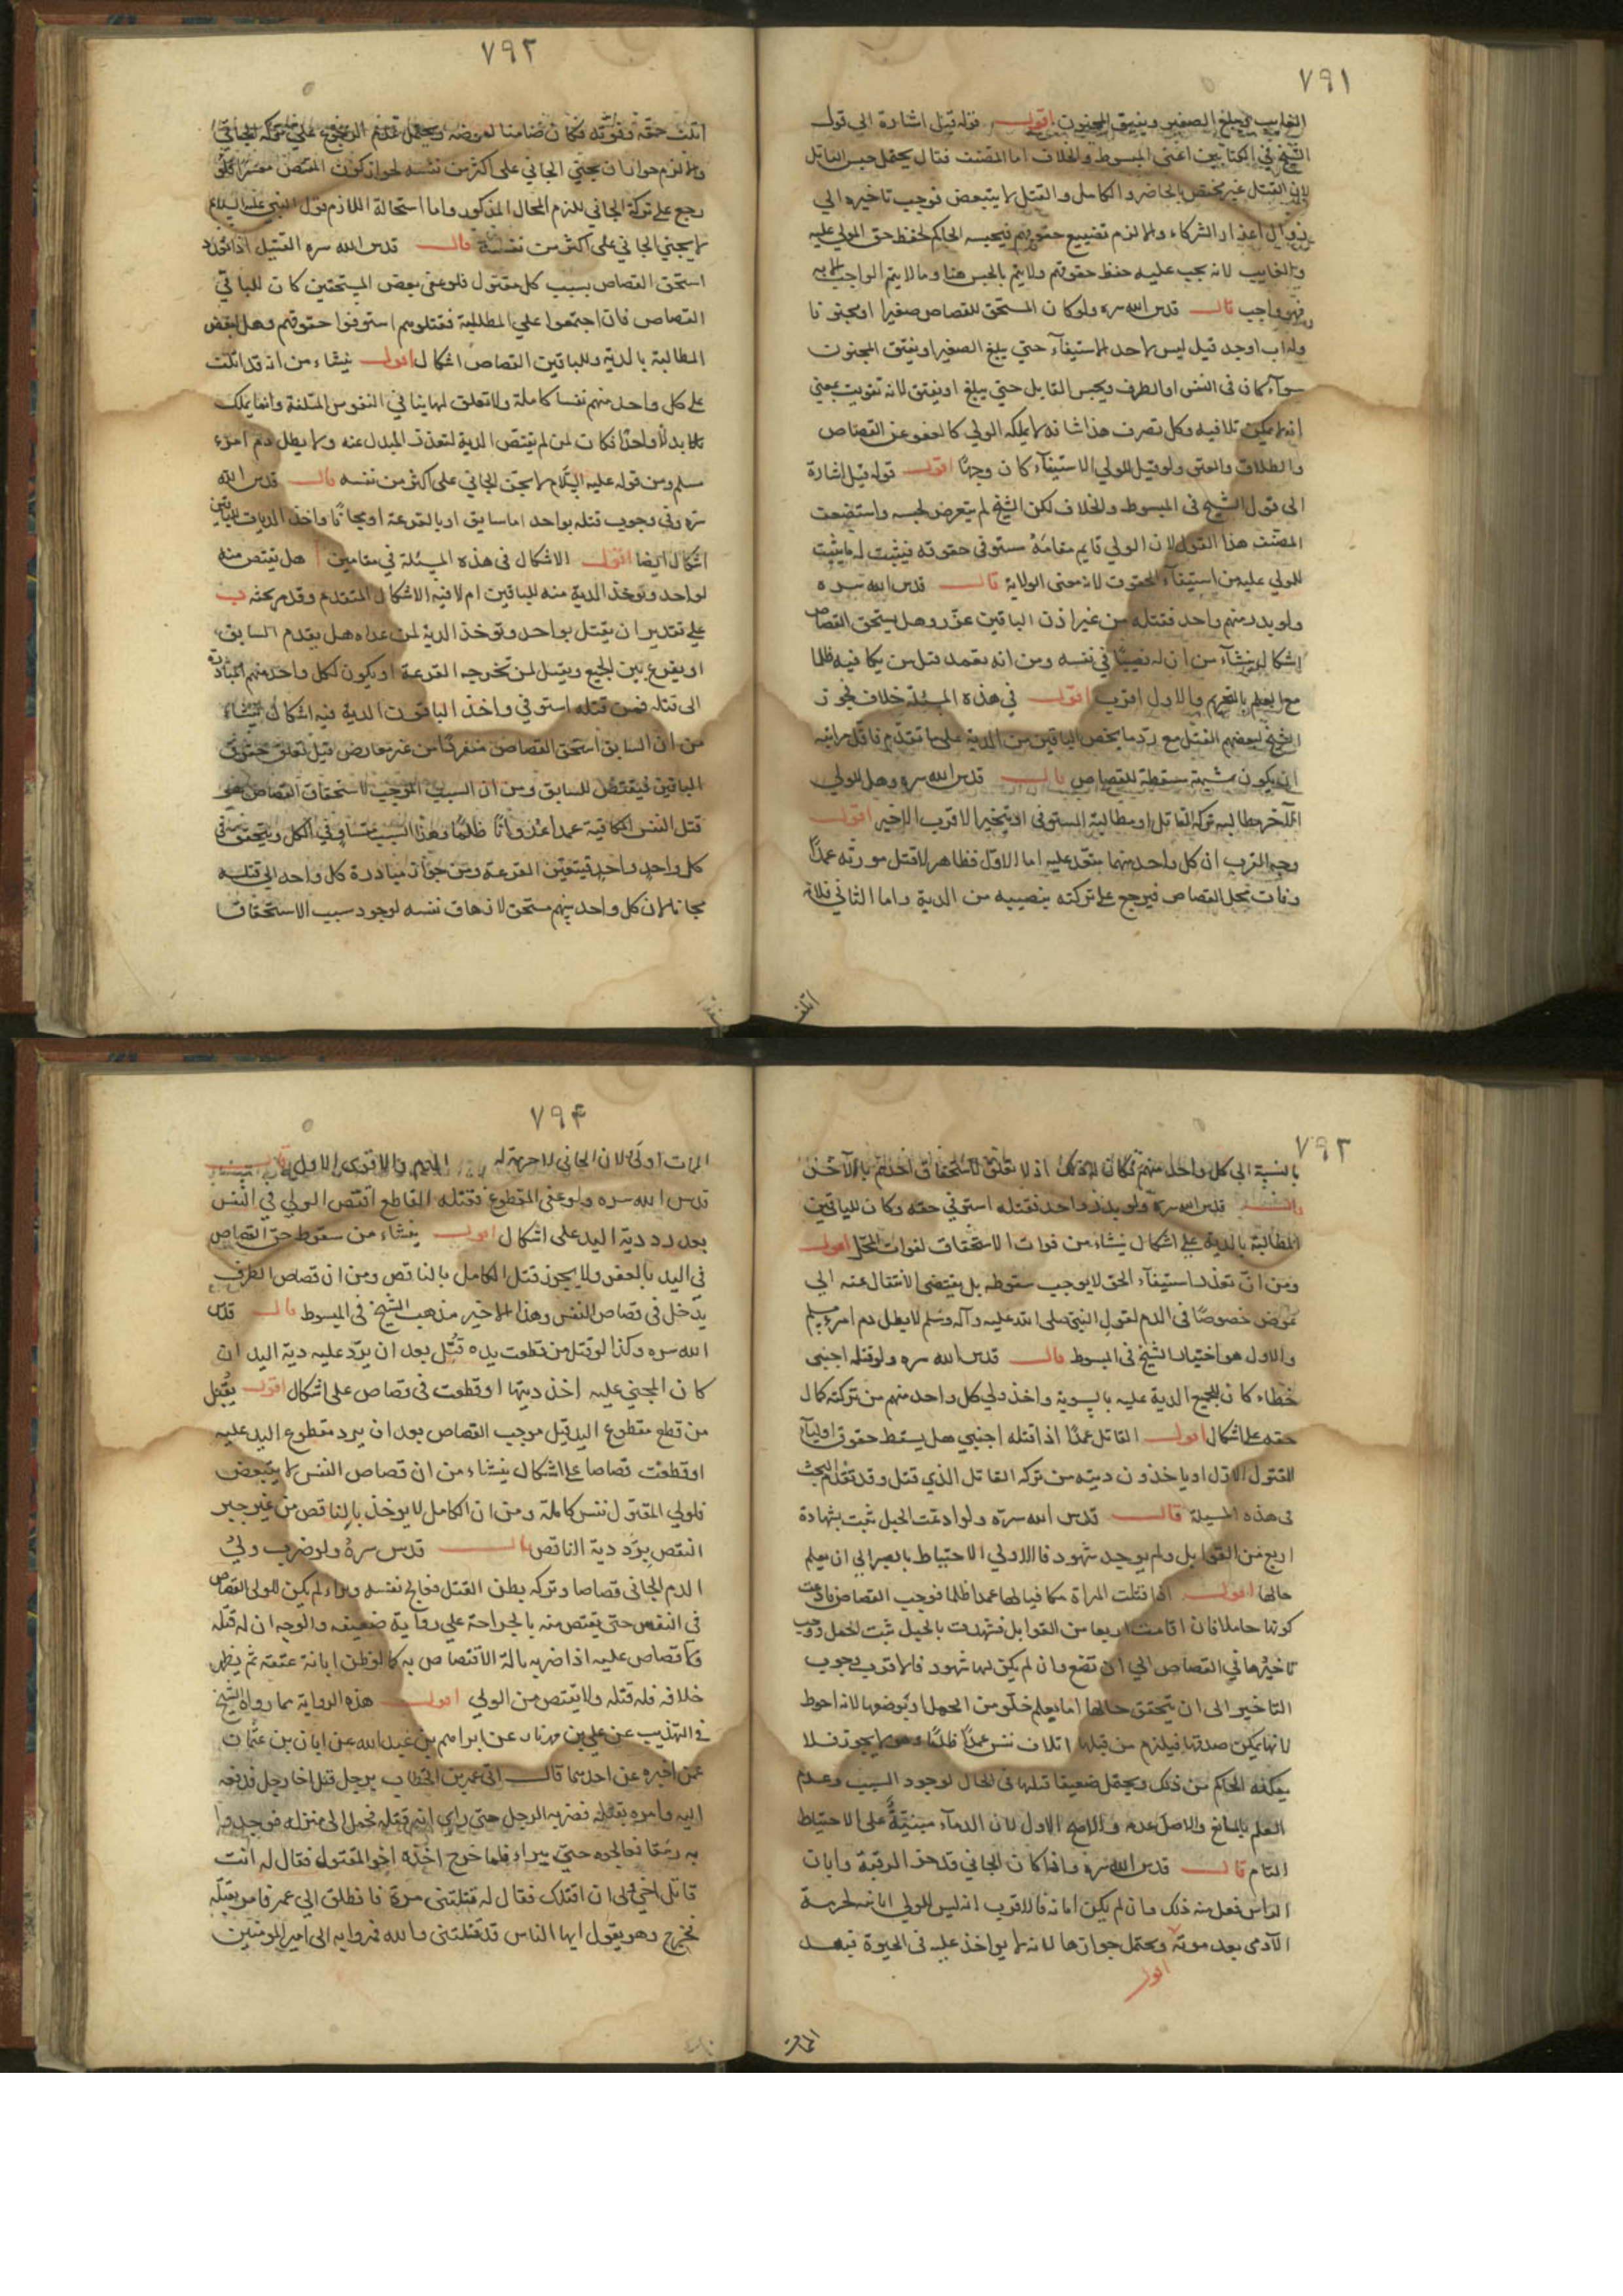 ٧٩١
الغايب ويبلغ الصغير ويفيق المجنون اقول قوله قيل اشارة الى قول
الشيخ في الكتابين اعني المبسوط والخلاف اما المصنف فقال يحتمل حبس القاتل
لان القتل غير مختص بالحاضر والكامل والقتل لا يتبعض فوجب تاخيره الى
زوال اعذار الشركاء والا لزم تضييع حقوقهم فيحبسه الحاكم لحفظ حق المولى عليه
والغايب لانه يجب عليه حفظ حقوقهم ولا يتم بالحبس هنا وما لا يتم الواجب الا به
فهو واجب قال قدس الله سره ولو كان المستحق للقصاص صغيرا او مجنونا
وله اب او جد قيل ليس لاحد الاستيفآء حتى يبلغ الصغير او يفيق المجنون
سوآء كان في النفس او الطرف ويحبس القاتل حتى يبلغ او يفيق لانه تفويت بمعنى
انه لا يمكن تلافيه وكل تصرف هذا شانه لا يملكه الولي كالعفو عن القصاص
والطلاق والعتق ولو قيل للولي الاستيفآء كان وجها اقول قوله قيل اشارة
الى قول الشيخ في المبسوط والخلاف لكن الشيخ لم يتعرض لحبسه واستضعف
المصنف هذا القول لان الولي قايم مقامه مستوفي حقوقه فيثبت له ما يثبت
للمولى عليه من استيفآء الحقوق لانه معنى الولاية قال قدس الله سره
ولو بدر منهم واحد فقتله من غير اذن الباقين عزر وهل يستحق القصاص
اشكال ينشآء من ان له نصيبا في نفسه ومن انه تعمد قتل من يكافيه ظلما
مع العلم بالتحريم والاول اقرب اقول في هذه المسئلة خلاف فجوز
الشيخ لبعضهم القتل مع رد ما يخص الباقين من الدية على ما تقدم فاقل مراتبه
ان يكون شبهة مسقطة للقصاص قال قدس الله سره وهل للولي
الآخر مطالبة تركة القاتل او مطالبة المستوفي او يتخير الاقرب الاخير اقول
وجه القرب ان كل واحد منهما متعد عليه اما الاول فظاهر لقتل مورثه عمدا
وفات محل القصاص فيرجع على تركته بنصيبه من الدية واما الثاني فلانه
اتلف
٧٩٢
اتلف حقه وفوته فكان ضامنا لعوضه ويحتمل عدم الرجوع على تركة الجاني
والا لزم جواز ان يجني الجاني على اكثر من نفسه لجواز كون المقتص معسرا فلو
رجع على تركة الجاني للزم المحال المذكور واما استحالة اللازم فلقول النبي عليه السلام
لا يجني الجاني على اكثر من نفسه قال قدس الله سره القتيل اذا تعدد
استحق القصاص بسبب كل مقتول فلو عفى بعض المستحقين كان للباقي
القصاص فان اجتمعوا على المطالبة فقتلوهم استوفوا حقوقهم وهل لبعض
المطالبة بالدية وللباقين القصاص اشكال اقول ينشاء من انه قد اتلف
على كل واحد منهم نفسا كاملة ولا تعلق لها بنا في النفوس المتلفة وانما يملك
بدلا واحدا فكان لمن لم يقتص الدية لتعذر المبدل عنه ولا يطل دم امرء
مسلم ومن قوله عليه السلام لا يجني الجاني على اكثر من نفسه قال قدس الله
سره وفي وجوب قتله بواحد اما سابق او بالقرعة او مجانا واخذ الديات للباقين
اشكال ايضا اقول الاشكال في هذه المسئلة في مقامين ا هل يقتص منه
لواحد ويوخذ الدية منه للباقين ام لا فيه الاشكال المتقدم وقد مر بحثه ب
على تقدير ان يقتل بواحد ويوخذ الدية لمن عداه هل يقدم السابق
او يقرع بين الجميع ويقتل لمن تخرجه القرعة او يكون لكل واحد منهم المبادرة
الى قتله فمن قتله استوفي واخذ الباقون الدية فيه اشكال ينشاء
من ان السابق استحق القصاص منفردا من غير معارض قبل تعلق حقوق
الباقين فيقتص للسابق ومن ان السبب الموجب لاستحقاق القصاص هو
قتل النفس المكافية عمدا عدوانا ظلما وهذا السبب متساو في الكل ويتحقق في
كل واحد واحد فيتعين القرعة ومن جواز مبادرة كل واحد الى قتله
مجانا لان كل واحد منهم مستحق لازهاق نفسه لوجود سبب الاستحقاق
٧٩٣
بالنسبة الى كل واحد منهم فكان له ذلك اذ لا تعلق لاستحقاق احدهم بالآخر
قال قدس الله سره ولو بدر واحد فقتله استوفي حقه وكان للباقين
المطالبة بالدية على اشكال ينشاء من فوات الاستحقاق لفوات المحل اقول
ومن ان تعذر استيفآء الحق لا يوجب سقوطه بل يقتضي الانتقال عنه الى
عوض خصوصا في الدم لقول النبي صلى الله عليه وآله وسلم لا يطل دم امرء مسلم
والاول هو اختيار الشيخ في المبسوط قال قدس الله سره ولو قتله اجنبي
خطاء كان للجميع الدية عليه بالسوية واخذ ولي كل واحد منهم من تركته كمال
حقه على اشكال اقول القاتل عمدا اذا قتله اجنبي هل يسقط حقوق اوليآء
المقتول الاول او ياخذون ديته من تركه القاتل الذي قتل وقد تقدم البحث
في هذه المسيلة قال قدس الله سره ولو ادعت الحبل ثبت بشهادة
اربع من القوابل ولو لم يوجد شهود فالاولى الاحتياط بالصبر الى ان يعلم
حالها اقول اذا قتلت المراة مكافيا لها عمدا ظلما فوجب القصاص فادعت
كونها حاملا فان اقامت اربعا من القوابل فشهدت بالحبل ثبت الحمل ووجب
تاخيرها في القصاص الى ان تضع وان لم يكن لها شهود فالاقرب وجوب
التاخير الى ان يتحقق حالها اما بعلم خلو من الحمل او بوضعها لانه احوط
لانها يمكن صدقها فيلزم من قتلها اتلاف نفس عمدا ظلما وهو لا يجوز فلا
يمكنه الحاكم من ذلك ويحتمل ضعيفا قتلها في الحال لوجود السبب وعدم
العلم بالمانع والاصل عدمه والاصح الاول لان الدمآء مبنية على الاحتياط
التام قال قدس الله سره واذا كان الجاني قد حز الرقبة وابان
الراس فعل منه ذلك وان لم يكن ابانه فالاقرب انه ليس للولي ابانته لحرمة
الآدمي بعد موته ويحتمل جوازها لانه لا يواخذ عليه في الحيوة فبعد
اقول
المو
٧٩۴
المات اولى لان الجاني لا حرمة له والاقوى الاول قال
قدس الله سره ولو عفى المقطوع فقتله القاطع اقتص الولي في النفس
بعد رد دية اليد على اشكال اقول ينشاء من سقوط حق القصاص
في اليد بالعفو ولا يجوز قتل الكامل بالناقص ومن ان قصاص الطرف
يدخل في قصاص النفس وهذا الاخير مذهب الشيخ في المبسوط قال قدس
الله سره وكذا لو قتل من قطعت يده قتل بعد ان يرد عليه دية اليد ان
كان المجني عليه اخذ ديتها او قطعت في قصاص على اشكال اقول يقتل
من قطع مقطوع اليد قبل موجب القصاص بعد ان يرد مقطوع اليد عليه
او قطعت قصاصا على اشكال ينشاء من ان قصاص النفس لا يتبعض
فلولي المقتول نفس كاملة ومن ان الكامل لا يوخذ بالناقص من غير جبر
النقص برد دية الناقص قال قدس سره ولو ضرب ولي
الدم الجاني قصاصا وتركه بظن القتل فعالج نفسه وبراء لم يكن للولي القصاص
في النفس حتى يقتص منه بالجراحة على رواية ضعيفه والوجه ان له قتله
ولا قصاص عليه اذا ضربه بالة الاقتصاص به كما لو ظن ابانة عنقه ثم يظهر
خلافه فله قتله ولا يقتص من الولي اقول هذه الرواية مما رواه الشيخ
في التهذيب عن علي بن مهزيار عن ابراهيم بن عبد الله عن ابان بن عثمان
عمن اخبره عن احدهما قال اتي عمر بن الخطاب برجل قتل اخا رجل فدفعه
اليه وامره بقتله فضربه الرجل حتى راى انه قتله فحمل الى منزله فوجدوا
به رمقا فعالجوه حتى براء فلما خرج اخذه اخو المقتول فقال له انت
قاتل اخي ولي ان اقتلك فقال له قتلتني مرة فانطلق الى عمر فامر بقتله
فخرج وهو يقول ايها الناس قد قتلتني والله فمروا به الى امير المومنين